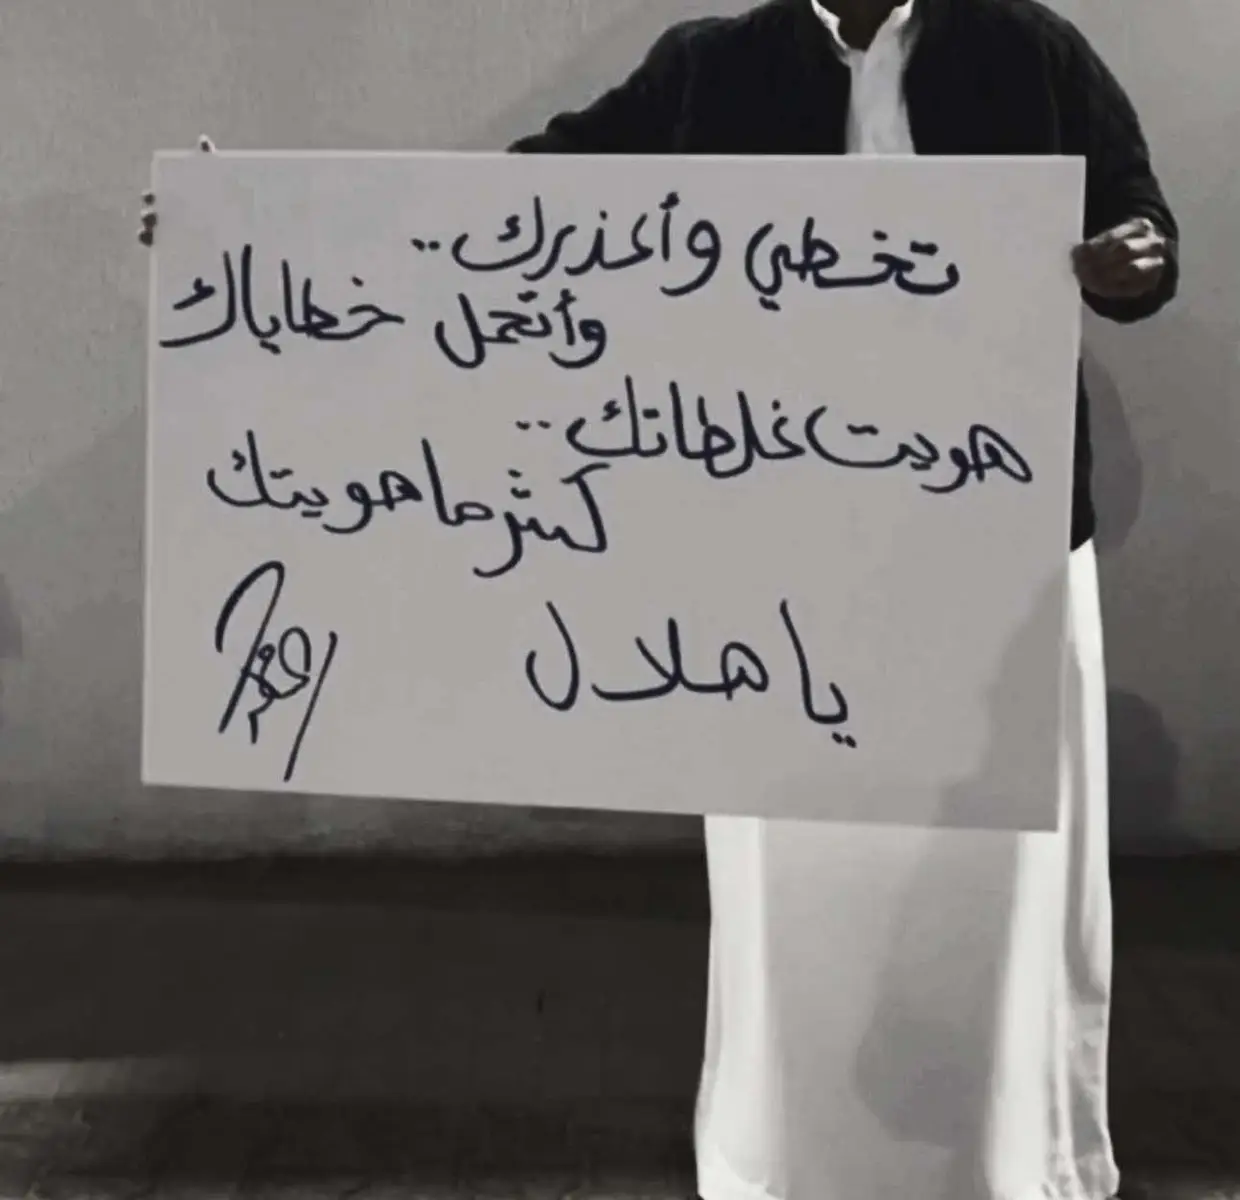 تخطي وأعذرك..
وأتحمل خطاياك
هويت غلطاتك..
كثر ما هويتك
يا هلال